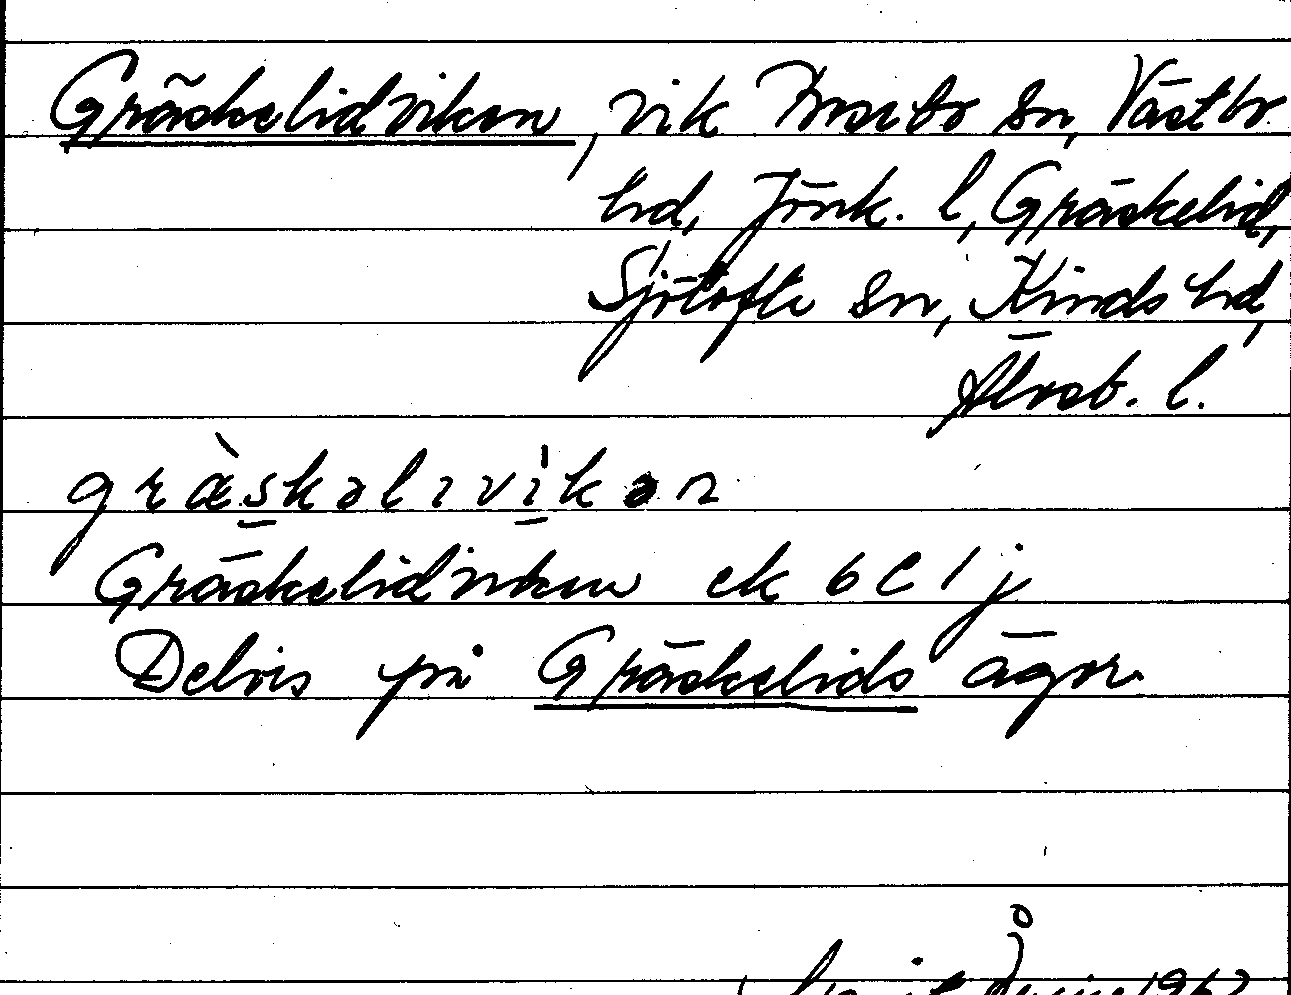 Gräskelidviken, vik Sn, Västbo
hd, Jönk. l, Gräskelid,
Sjötofta Sn, Kinds hd,
Älvsb. l.
græ̀skəlıvı̍kən
Gräskelidviken ek 6 C 1 j
Delvis på Gräskelids ägor.